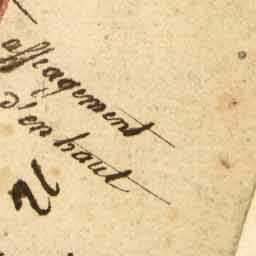 affeagement
d'en haut